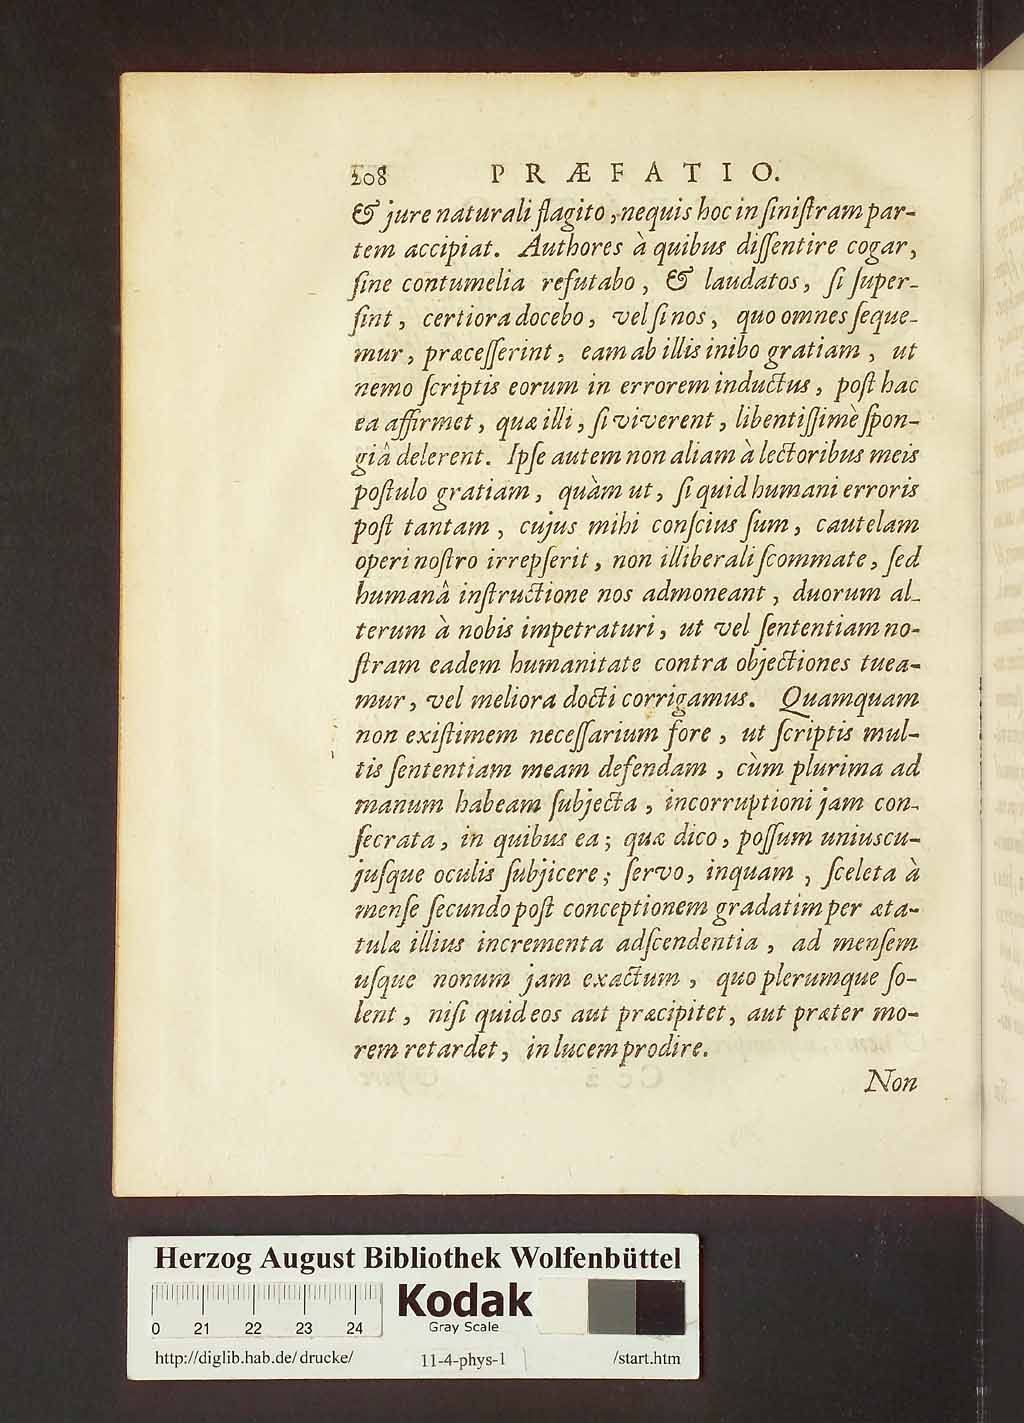 208 PRÆFATIO.
& jure naturali flagito, nequis hoc in ſiniſtram par-
tem accipiat. Authores à quibus diſſentire cogar,
ſine contumelia refutabo, & laudatos, ſi ſuper-
ſint, certiora docebo, vel ſi nos, quo omnes ſeque-
mur, præceſſerint, eam ab illis inibo gratiam, ut
nemo ſcriptis eorum in errorem inductus, poſt hac
ea affirmet, quæ illi, ſi viverent, libentiſſimè ſpon-
giâ delerent. Ipſe autem non aliam à lectoribus meis
poſtulo gratiam, quàm ut, ſi quid humani erroris
poſt tantam, cujus mihi conſcius ſum, cautelam
operi noſtro irrepſerit, non illiberali ſcommate, ſed
humanâ inſtructione nos admoneant, duorum al-
terum à nobis impetraturi, ut vel ſententiam no-
ſtram eadem humanitate contra objectiones tuea-
mur, vel meliora docti corrigamus. Quamquam
non exiſtimem neceſſarium fore, ut ſcriptis mul-
tis ſententiam meam defendam, cùm plurima ad
manum habeam ſubjecta, incorruptioni jam con-
ſecrata, in quibus ea; quæ dico, poſſum uniuscu-
juſque oculis ſubjicere; ſervo, inquam, ſceleta à
menſe ſecundo poſt conceptionem gradatim per æta-
tulæ illius incrementa adſcendentia, ad menſem
uſque nonum jam exactum, quo plerumque ſo-
lent, niſi quid eos aut præcipitet, aut præter mo-
rem retardet, in lucem prodire.
Non
Herzog August Bibliothek Wolfenbüttel
Kodak
Gray Scale
0 21 22 23 24
http://diglib.hab.de/drucke/ 11-4-phys-1 /start.htm